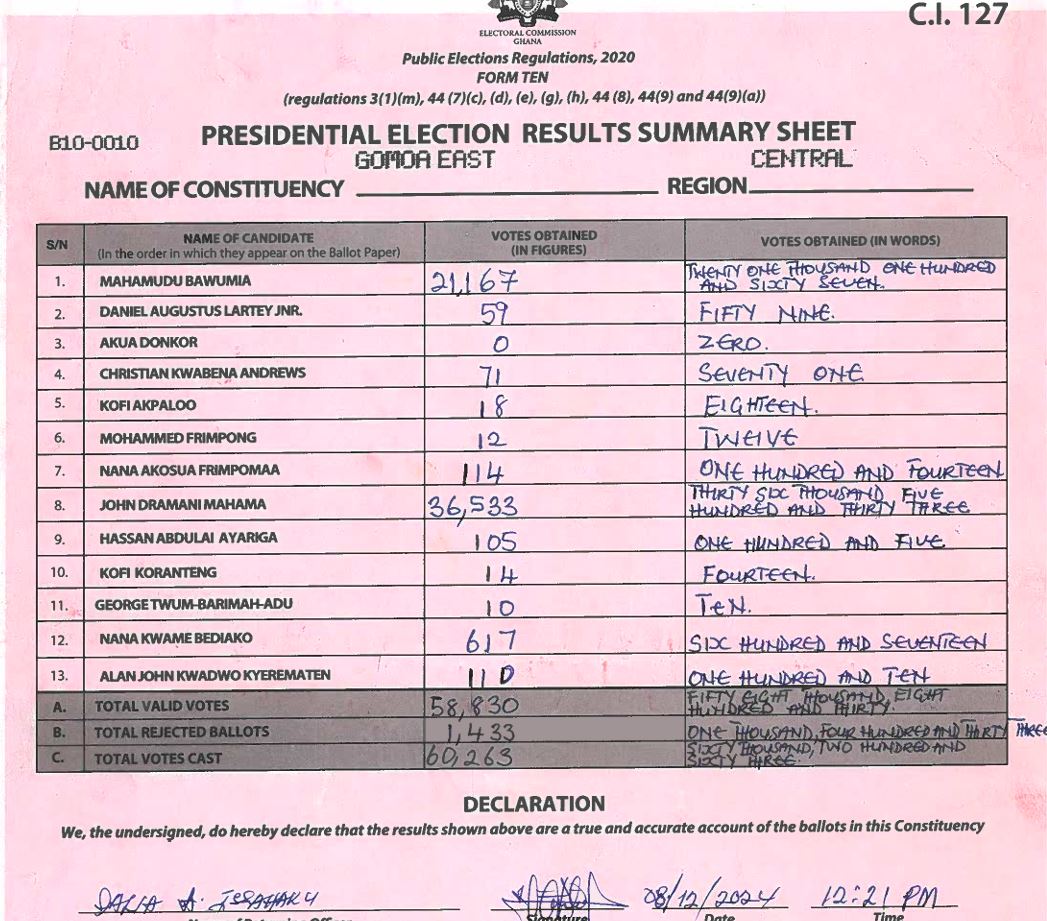 C.I. 127
ELECTORAL COMMISSION
GHANA
Public Elections Regulations, 2020
FORM TEN
(regulations 3(1)(m), 44 (7)(c), (d), (e), (g), (h), 44 (8), 44(9) and 44(9)(a))
B10-0010 PRESIDENTIAL ELECTION RESULTS SUMMARY SHEET
GOMOA EAST CENTRAL
NAME OF CONSTITUENCY REGION
S/N NAME OF CANDIDATE (In the order in which they appear on the Ballot Paper) VOTES OBTAINED (IN FIGURES) VOTES OBTAINED (IN WORDS)
1. MAHAMUDU BAWUMIA 21,167 TWENTY ONE THOUSAND ONE HUNDRED AND SIXTY SEVEN.
2. DANIEL AUGUSTUS LARTEY JNR. 59 FIFTY NINE.
3. AKUA DONKOR 0 ZERO.
4. CHRISTIAN KWABENA ANDREWS 71 SEVENTY ONE
5. KOFI AKPALOO 18 EIGHTEEN.
6. MOHAMMED FRIMPONG 12 TWELVE
7. NANA AKOSUA FRIMPOMAA 114 ONE HUNDRED AND FOURTEEN
8. JOHN DRAMANI MAHAMA 36,533 THIRTY SIX THOUSAND FIVE HUNDRED AND THIRTY THREE
9. HASSAN ABDULAI AYARIGA 105 ONE HUNDRED AND FIVE
10. KOFI KORANTENG 14 FOURTEEN.
11. GEORGE TWUM-BARIMAH-ADU 10 TEN.
12. NANA KWAME BEDIAKO 617 SIX HUNDRED AND SEVENTEEN
13. ALAN JOHN KWADWO KYEREMATEN 110 ONE HUNDRED AND TEN
A. TOTAL VALID VOTES 58,830 FIFTY EIGHT THOUSAND, EIGHT HUNDRED AND THIRTY.
B. TOTAL REJECTED BALLOTS 1,433 ONE THOUSAND, FOUR HUNDRED AND THIRTY THREE
C. TOTAL VOTES CAST 60,263 SIXTY THOUSAND, TWO HUNDRED AND SIXTY THREE.
DECLARATION
We, the undersigned, do hereby declare that the results shown above are a true and accurate account of the ballots in this Constituency
08/12/2024 12:21 PM
Signature Date Time